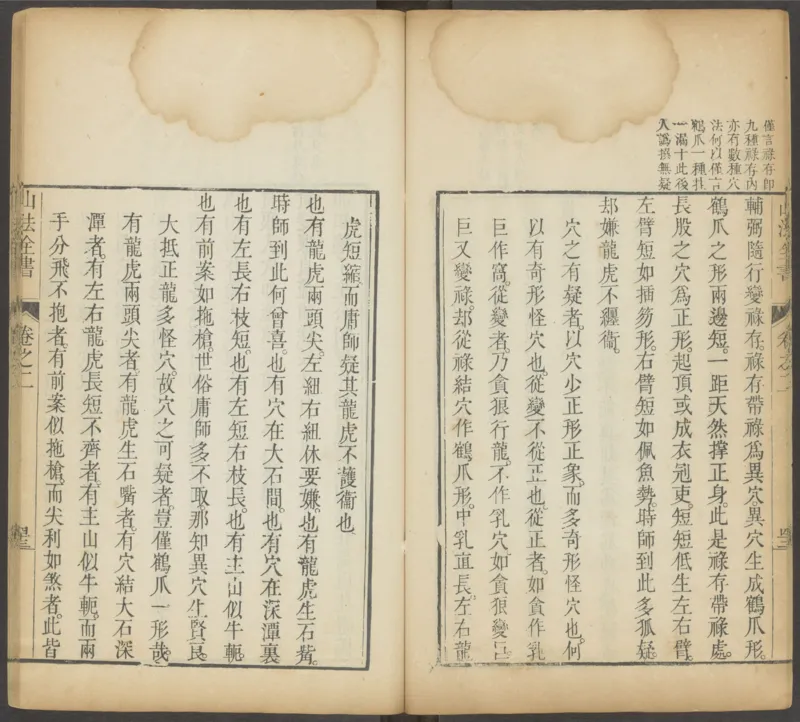 僅言祿存即
九種祿存內
亦有數種穴
法何以僅言
鶴爪一種挂
一漏十此後
人譌撰無疑
輔弼隨行變祿存。祿存帶祿爲異穴。異穴生成鶴爪形。
鶴爪之形兩邊短。一距天然撑正身。此是祿存帶祿處。
長股之穴爲正形。起頂或成衣冠吏。短短低生左右臂。
左臂短如插笏形。右臂短如佩魚勢。時師到此多狐疑。
却嫌龍虎不纒衞。
穴之有疑者。以穴少正形正象。而多奇形怪穴也。何
以有奇形怪穴也。從變不從正也。從正者。如貪作乳
巨作窩。從變者。乃貪狼行龍。不作乳穴。如貪狼變巨
巨又變祿。却從祿結穴。作鶴爪形。中乳直長。左右龍
虎短縮。而庸師疑其龍虎不護衞也
也有龍虎兩頭尖。左紐右紐休要嫌。也有龍虎生石觜。
時師到此何曾喜。也有穴在大石間。也有穴在深潭裏
也有左長右枝短。也有左短右枝長。也有主山似牛軛。
也有前案如拖槍。世俗庸師多不取。那知異穴生賢良
大抵正龍多怪穴。故穴之可疑者。豈僅鶴爪一形哉。
有龍虎兩頭尖者。有龍虎生石嘴者。有穴結大石深
潭者。有左右龍虎長短不齊者。有主山似牛軛。而兩
手分飛不抱者。有前案似拖槍。而尖利如煞者。此皆
山法全書
卷之